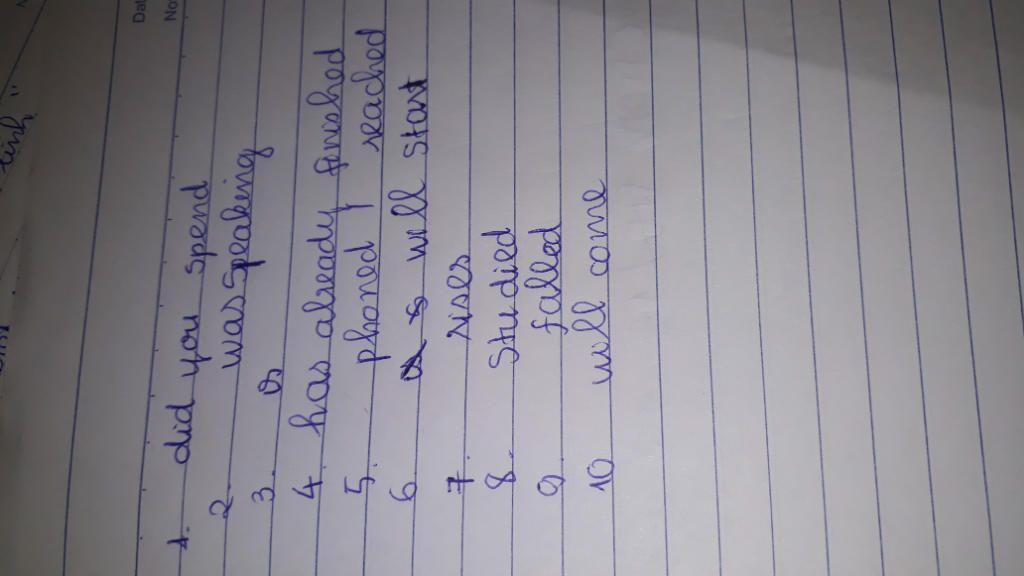 1. did you spend
2. was speaking
3. is
4. has already finished
5. phoned / reached
6. will start
7. rises
8. Studied
9. falled
10 will come